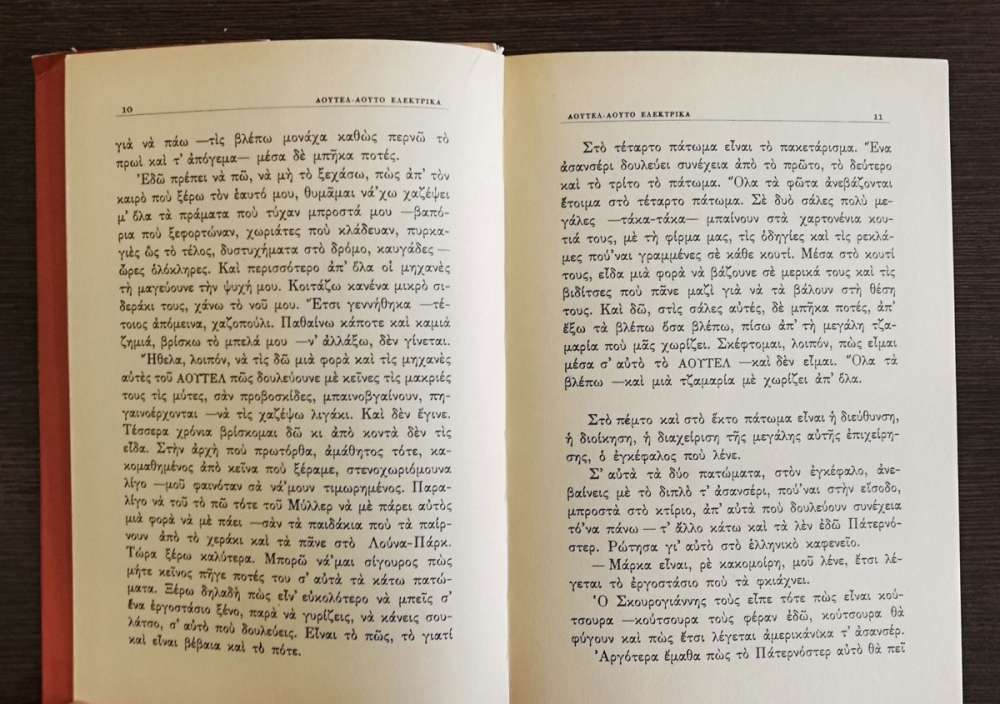 10
ΑΟΥΤΕΛ-ΑΟΥΤΟ ΕΛΕΚΤΡΙΚΑ
γιὰ νὰ πάω —τὶς βλέπω μονάχα καθὼς περνῶ τὸ
πρωὶ καὶ τ' ἀπόγεμα— μέσα δὲ μπῆκα ποτές.
Ἐδῶ πρέπει νὰ πῶ, νὰ μὴ τὸ ξεχάσω, πὼς ἀπ' τὸν
καιρὸ ποὺ ξέρω τὸν ἑαυτό μου, θυμᾶμαι νά'χω χαζέψει
μ' ὅλα τὰ πράματα ποὺ τύχαν μπροστά μου —βαπό-
ρια ποὺ ξεφορτώναν, χωριάτες ποὺ κλάδευαν, πυρκα-
γιὲς ὣς τὸ τέλος, δυστυχήματα στὸ δρόμο, καυγάδες —
ὧρες ὁλόκληρες. Καὶ περισσότερο ἀπ' ὅλα οἱ μηχανὲς
τὴ μαγεύουνε τὴν ψυχή μου. Κοιτάζω κανένα μικρὸ σι-
δεράκι τους, χάνω τὸ νοῦ μου. Ἔτσι γεννήθηκα —τέ-
τοιος ἀπόμεινα, χαζοπούλι. Παθαίνω κάποτε καὶ καμιὰ
ζημιά, βρίσκω τὸ μπελά μου —ν' ἀλλάξω, δὲν γίνεται.
Ἤθελα, λοιπόν, νὰ τὶς δῶ μιὰ φορὰ καὶ τὶς μηχανὲς
αὐτὲς τοῦ ΑΟΥΤΕΛ πῶς δουλεύουνε μὲ κεῖνες τὶς μακριές
τους τὶς μύτες, σὰν προβοσκίδες, μπαινοβγαίνουν, πη-
γαινοέρχονται —νὰ τὶς χαζέψω λιγάκι. Καὶ δὲν ἔγινε.
Τέσσερα χρόνια βρίσκομαι δῶ κι ἀπὸ κοντὰ δὲν τὶς
εἶδα. Στὴν ἀρχὴ ποὺ πρωτόρθα, ἀμάθητος τότε, κα-
κομαθημένος ἀπὸ κεῖνα ποὺ ξέραμε, στενοχωριόμουνα
λίγο —μοῦ φαινόταν σὰ νά'μουν τιμωρημένος. Παρα-
λίγο νὰ τοῦ τὸ πῶ τότε τοῦ Μύλλερ νὰ μὲ πάρει αὐτὸς
μιὰ φορὰ νὰ μὲ πάει —σὰν τὰ παιδάκια ποὺ τὰ παίρ-
νουν ἀπὸ τὸ χεράκι καὶ τὰ πᾶνε στὸ Λούνα-Πάρκ.
Τώρα ξέρω καλύτερα. Μπορῶ νά'μαι σίγουρος πὼς
μήτε κεῖνος πῆγε ποτές του σ' αὐτὰ τὰ κάτω πατώ-
ματα. Ξέρω δηλαδὴ πὼς εἶν' εὐκολότερο νὰ μπεῖς σ'
ἕνα ἐργοστάσιο ξένο, παρὰ νὰ γυρίζεις, νὰ κάνεις σου-
λάτσο, σ' αὐτὸ ποὺ δουλεύεις. Εἶναι τὸ πῶς, τὸ γιατί
καὶ εἶναι βέβαια καὶ τὸ πότε.
ΑΟΥΤΕΛ-ΑΟΥΤΟ ΕΛΕΚΤΡΙΚΑ
11
Στὸ τέταρτο πάτωμα εἶναι τὸ πακετάρισμα. Ἕνα
ἀσανσέρι δουλεύει συνέχεια ἀπὸ τὸ πρῶτο, τὸ δεύτερο
καὶ τὸ τρίτο τὸ πάτωμα. Ὅλα τὰ φῶτα ἀνεβάζονται
ἕτοιμα στὸ τέταρτο πάτωμα. Σὲ δυὸ σάλες πολὺ με-
γάλες —τάκα-τάκα— μπαίνουν στὰ χαρτονένια κου-
τιά τους, μὲ τὴ φίρμα μας, τὶς ὁδηγίες καὶ τὶς ρεκλά-
μες πού'ναι γραμμένες σὲ κάθε κουτί. Μέσα στὸ κουτί
τους, εἶδα μιὰ φορὰ νὰ βάζουνε σὲ μερικά τους καὶ τὶς
βιδίτσες ποὺ πᾶνε μαζὶ γιὰ νὰ τὰ βάλουν στὴ θέση
τους. Καὶ δῶ, στὶς σάλες αὐτές, δὲ μπῆκα ποτές, ἀπ'
ἔξω τὰ βλέπω ὅσα βλέπω, πίσω ἀπ' τὴ μεγάλη τζα-
μαρία ποὺ μᾶς χωρίζει. Σκέφτομαι, λοιπόν, πὼς εἶμαι
μέσα σ' αὐτὸ τὸ ΑΟΥΤΕΛ —καὶ δὲν εἶμαι. Ὅλα τὰ
βλέπω —καὶ μιὰ τζαμαρία μὲ χωρίζει ἀπ' ὅλα.
Στὸ πέμτο καὶ στὸ ἕκτο πάτωμα εἶναι ἡ διεύθυνση,
ἡ διοίκηση, ἡ διαχείριση τῆς μεγάλης αὐτῆς ἐπιχείρη-
σης, ὁ ἐγκέφαλος ποὺ λένε.
Σ' αὐτὰ τὰ δύο πατώματα, στὸν ἐγκέφαλο, ἀνε-
βαίνεις μὲ τὸ διπλὸ τ' ἀσανσέρι, πού'ναι στὴν εἴσοδο,
μπροστὰ στὸ κτίριο, ἀπ' αὐτὰ ποὺ δουλεύουν συνέχεια
τό'να πάνω — τ' ἄλλο κάτω καὶ τὰ λὲν ἐδῶ Πάτερνό-
στερ. Ρώτησα γι' αὐτὸ στὸ ἑλληνικὸ καφενεῖο.
— Μάρκα εἶναι, ρὲ κακομοίρη, μοῦ λένε, ἔτσι λέ-
γεται τὸ ἐργοστάσιο ποὺ τὰ φκιάχνει.
Ὁ Σκουρογιάννης τοὺς εἶπε τότε πὼς εἶναι κού-
τσουρα —κούτσουρα τοὺς φέραν ἐδῶ, κούτσουρα θὰ
φύγουν καὶ πὼς ἔτσι λέγεται ἀμερικάνικα τ' ἀσανσέρ.
Ἀργότερα ἔμαθα πὼς τὸ Πάτερνόστερ αὐτὸ θὰ πεῖ